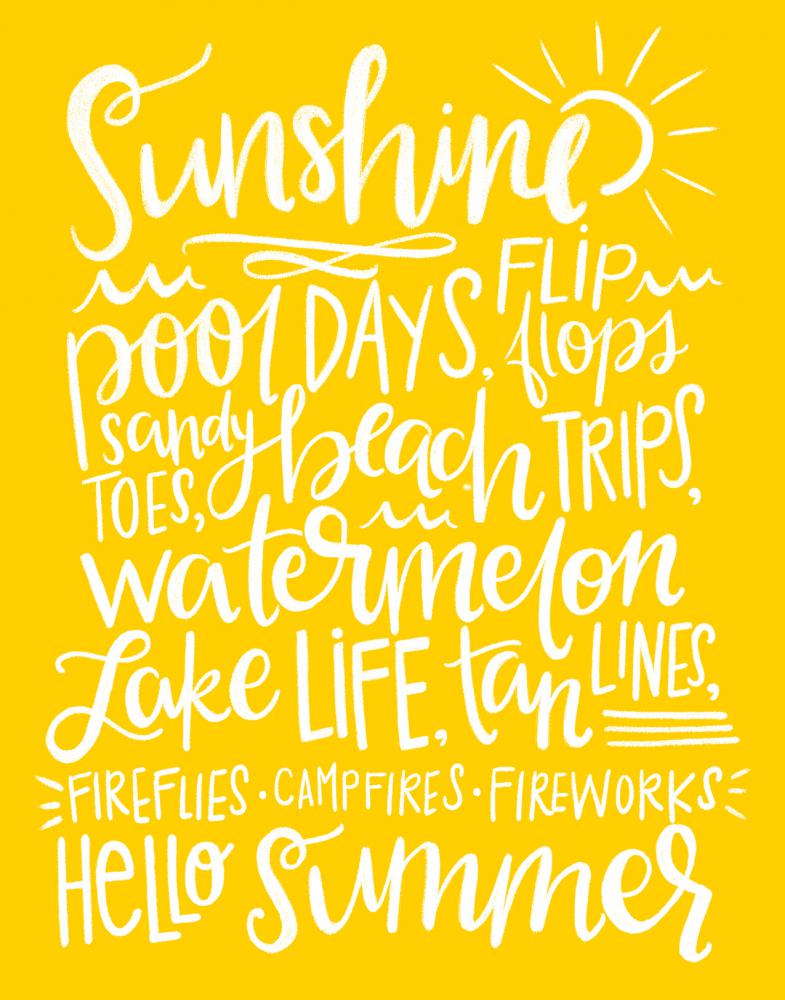 Sunshine
pool DAYS, FLIP flops
sandy TOES, beach TRIPS,
watermelon
Lake LiFE, tan LINES,
FIREFLIES · CAMPFIRES · FIREWORKS
HeLLo Summer